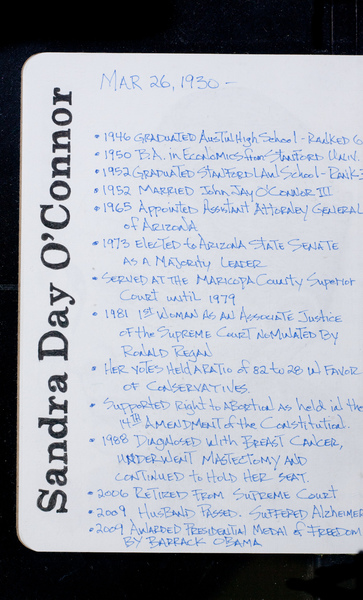 Sandra Day O'Connor
MAR 26, 1930 -
• 1946 GRADUATED Austin High School - RANKED 6
• 1950 B.A. in Economics from Stanford Univ.
• 1952 GRADUATED STANFORD LAW School - RANK 3
• 1952 MARRIED John Jay O'CONNOR III
• 1965 Appointed Assistant Attorney GENERAL
of ARIZONA
• 1973 Elected to Arizona State SENATE
AS A MAJORITY LEADER
• SERVED AT THE MARICOPA County Superior
Court until 1979
• 1981 1st WOMAN AS AN ASSOCIATE JUSTICE
OF the Supreme Court NOMINATED By
RONALD REGAN
• HER VOTES HELD A RATIO of 82 to 28 IN FAVOR
OF CONSERVATIVES.
• Supported Right to Abortion as held in the
14th AMENDMENT of the Constitutional.
• 1988 DIAGNOSED With BREAST CANCER,
UNDERWENT MASTECTOMY AND
CONTINUED to HOLD HER SEAT.
• 2006 RETIRED FROM SUPREME COURT
• 2009 HUSBAND PASSED. SUFFERED Alzheimer
• 2009 AWARDED PRESIDENTIAL MEDAL of FREEDOM
BY BARRACK OBAMA